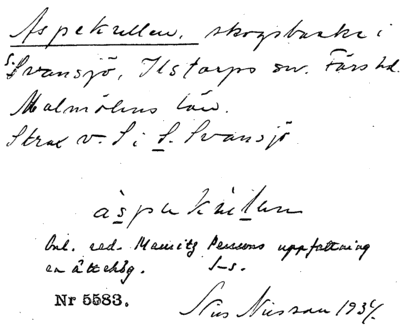 Aspekullen, skogsbacke i
S. Svansjö, Ilstorps sn. Färs hd.
Malmöhus län.
Strax v. S i S. Svansjö
Enl. red. Mauritz Perssons uppfattning
en ättehög. S-s.
Nr 5583. Nils Nilsson 1934.